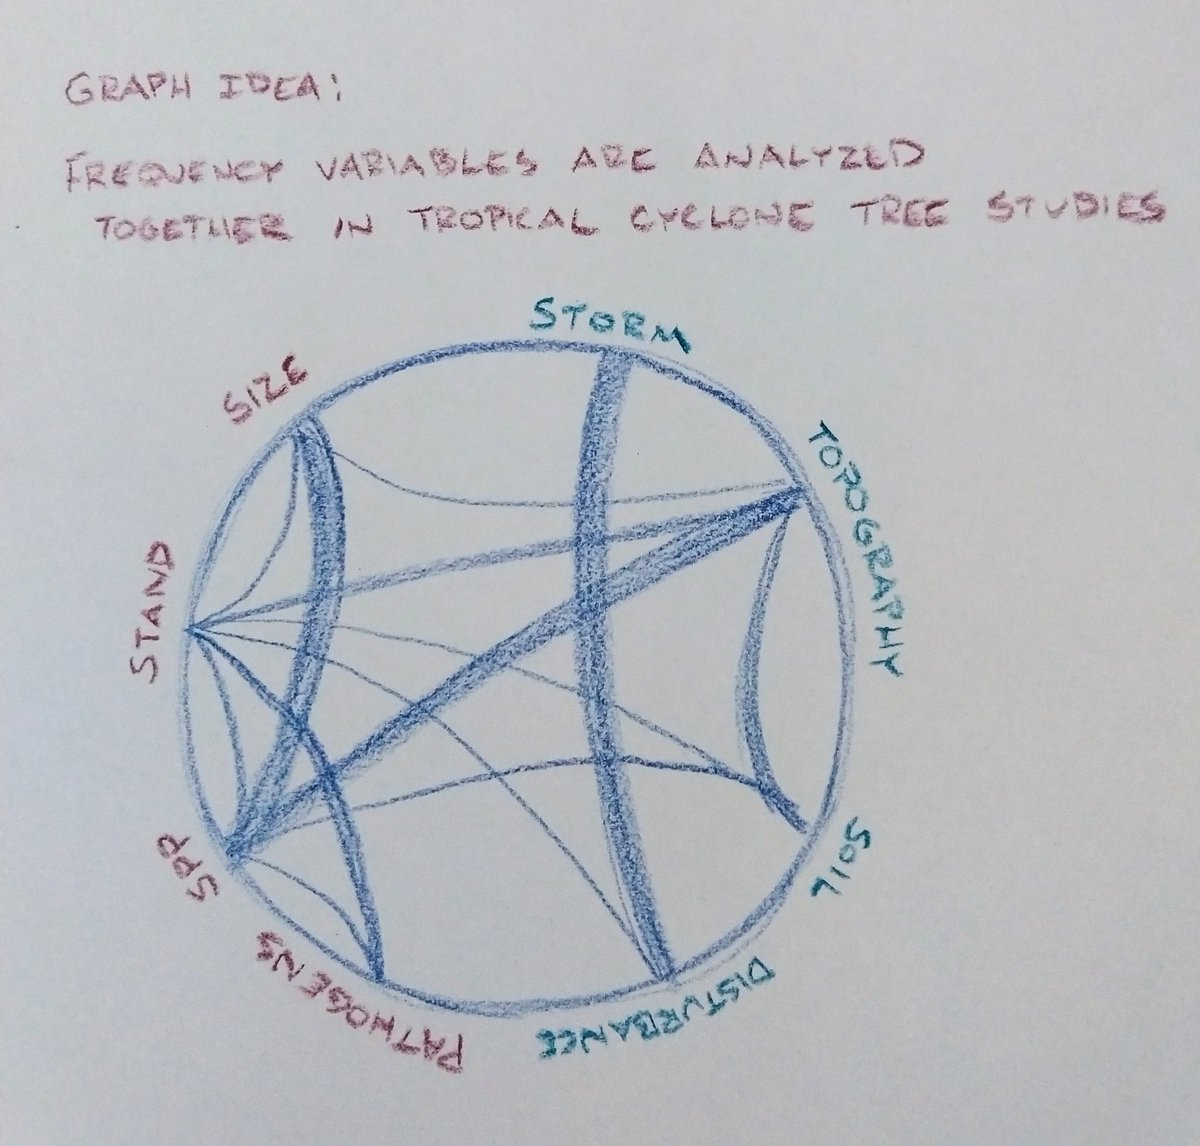 GRAPH IDEA:
FREQUENCY VARIABLES ARE ANALYZED
TOGETHER IN TROPICAL CYCLONE TREE STUDIES
STORM
SIZE
TOPOGRAPHY
STAND
SOIL
SPP
PATHOGENS
DISTURBANCE